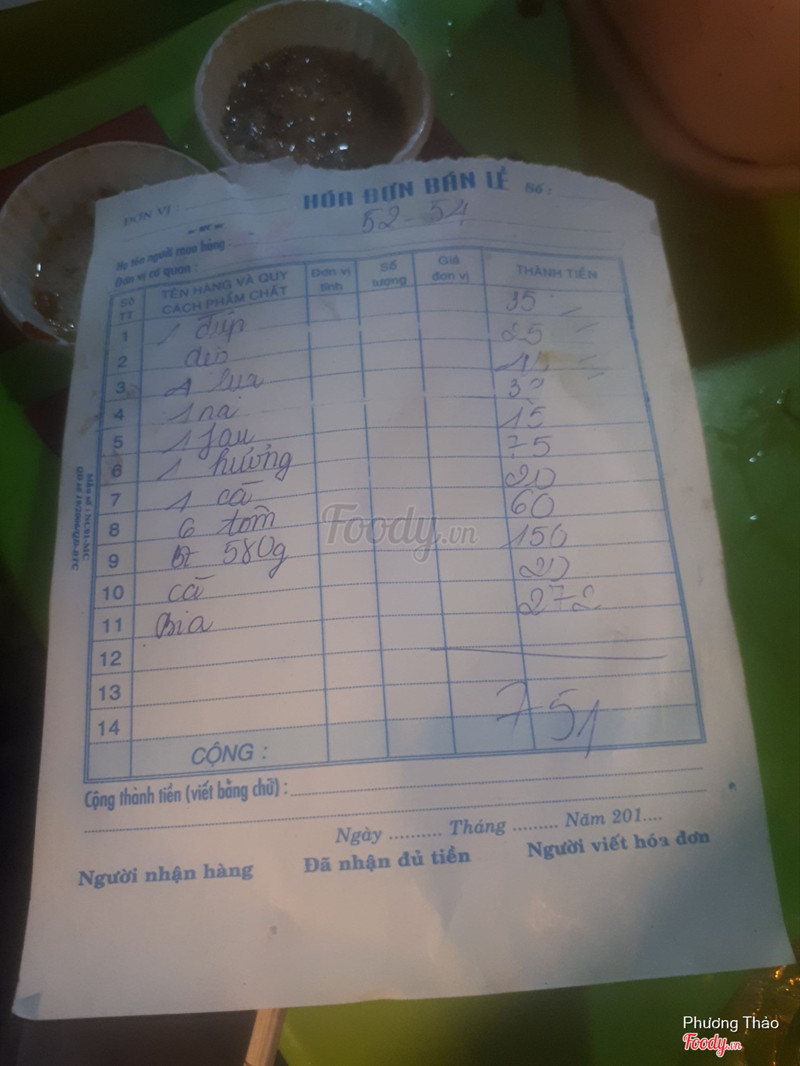 HÓA ĐƠN BÁN LẺ Số :
ĐƠN VỊ :
52-54
Họ tên người mua hàng :
Đơn vị cơ quan :
Số TT TÊN HÀNG VÀ QUY CÁCH PHẨM CHẤT Đơn vị tính Số lượng Giá đơn vị THÀNH TIỀN
35
1 1 25
2
3 1
4 1 15
5 1 75
6 1 hương 20
7 1 cà 60
8 6 tôm 150
9 580g 20
10 cà 272
11 bia
12
13
14 751
CỘNG :
Cộng thành tiền (viết bằng chữ) :
Ngày .......... Tháng ......... Năm 201....
Người nhận hàng Đã nhận đủ tiền Người viết hóa đơn
Foody.vn
Phương Thảo
Foody.vn